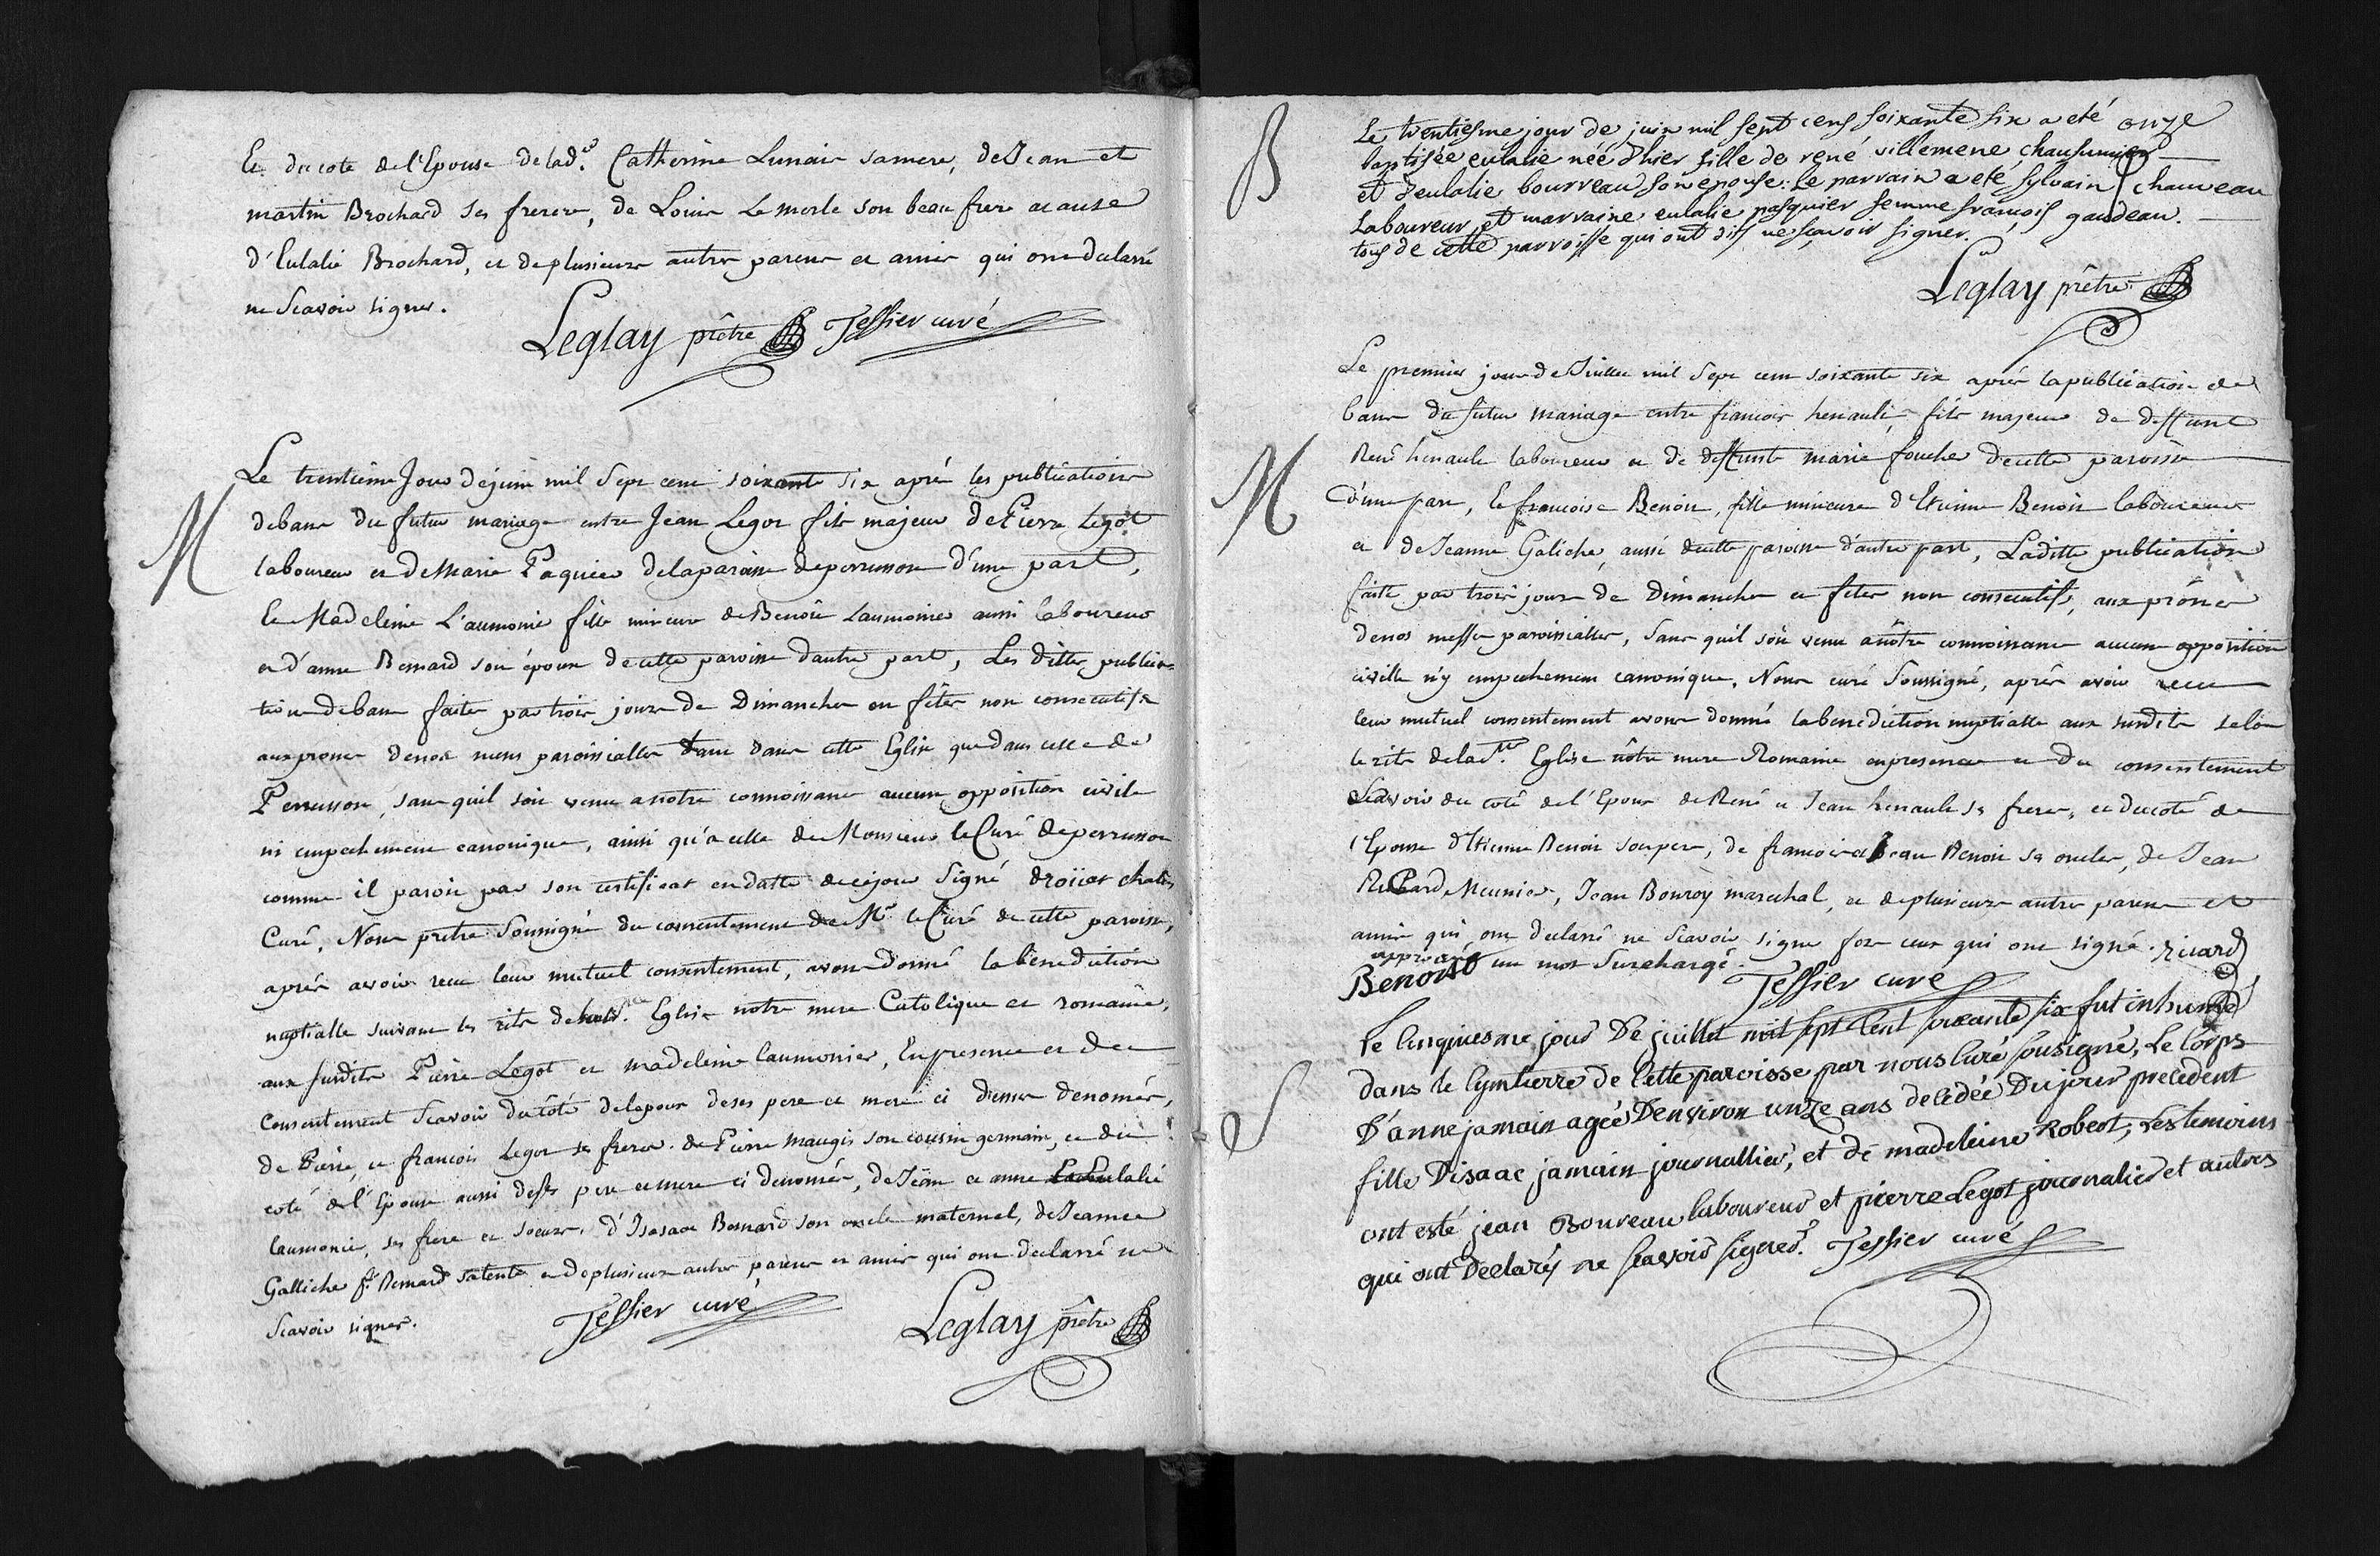 Et du cote de l'Epouse de lad.e Catherine Lunais sa mere, de Jean et
martin Brochard ses freres, de Louis Le merle son beau frere a cause
d'Eulalie Brochard, et de plusieurs autres parens et amis qui ont declarré
ne Scavoir signer.
Leglay prêtre Tessier curé
M
Le trentième Jour de juin mil Sept cent soixante six aprés les publications
de bans du futur mariage entre Jean Legot fils majeur de Pierre Legot
laboureur et de Marie Paquier de la paroisse de perrusson d'une part,
Et Madeleine L'aumonié fille mineure de Benoit Laumonier aussi laboureur
et d'anne Bernard son épouse de cette paroisse d'autre part, Les dittes publica-
tions de bans faites par trois jours de Dimanches ou fêtes non consecutifs
aux prones de nos messes paroissialles tant dans cette Eglise que dans celle de
Perrusson, sans quil soit venu a notre connoissance aucune opposition civile
ni empechement canonique, ainsi qu'a celle de Monsieur le Curé de perrusson
comme il paroit par son certificat en datte de ce jour Signé droüet
Curé, Nous pretre Soussigné du consentement de Mr le Curé de cette paroisse,
aprés avoir recu leur mutuel consentement, avons donné la bénédiction
nuptialle suivant les rits de Eglise notre mere Catolique et romaine,
aux susdits Pierre Legot et madeleine laumonier, En presence et du
consentement Scavoir du côté de lepoux de ses pere et mere ci denomés,
de Pierre, et francois Legot ses freres. de Pierre maugis son cousin germain, et du
coté de l'Epouse aussi de ses pere et mere ci denomés, de Jean et anne Eulalie
laumonier, ses frere et soeurs, d'Isaac Bernard son oncle maternel, de Jeanne
Galliche fe Bernard sa tente et de plusieurs autres parens et amis qui ont declarré ne
Scavoir signer.
Tessier curé Leglay prêtre
B
Le trentiesme jour de juin mil sept cens soixante six a eté
baptisée eulalie néé d'hier fille de rené villemene chaufumier
et d'eulalie bourreau son épouse: Le parrain a eté sylvain chauveau
Laboureur et marraine eulalie pasquier femme françois gaudeau.
tous de cette parroisse qui ont dis ne sçavoir signer.
Leglay prêtre
M
Le premier jour de Juillet mil Sept cent soixante six aprés la publication de
bans du futur mariage entre francois henault, fils majeur de deffunt
René henault laboureur et de deffunte marie fouché de cette paroisse
d'une part, Et francoise Benoit, fille mineure d'Etienne Benoit laboureur
et de Jeanne Galiche, aussi de cette paroisse d'autre part, Laditte publication
faite par trois jours de Dimanches et fetes non consecutifs, aux prônes
de nos messes paroissialles, sans qu'il soit venu a nôtre connoissance aucune opposition
civille n'y empechement canonique. Nous curé Soussigné, aprés avoir recu
leur mutuel consentement avons donné la benediction nuptialle aux susdits selon
le rite de la Ste Eglise nôtre mere Romaine en presence et du consentement
Scavoir du coté de l'Epoux de René et Jean henault ses freres, et du coté de
l'Epouse d'Etienne Benoit son pere, de francois et Jean Benoit ses oncles, de Jean
Ricard Meunier, Jean Bonroy marechal, et de plusieurs autres parens et
amis qui ont declarré ne Scavoir signer fors ceux qui ont signé. Ricard
approuvé un mot Surchargé.
Benoist Tessier curé
S
Le cinquiesme jour De juillet mil sept cent soixante six fut inhumé
dans le Cymtierre de Cette paroisse par nous Curé sousigné, Le Corps
D'anne jamain agéé D'environ unze ans décédée Du jour precedent
fille D'isaac jamain journallier, et de madeleine Robert, les temoins
ont esté jean Bonreau laboureur et pierre Legot journalier et autres
qui ont Declarés ne scavoir signer. Tessier curé